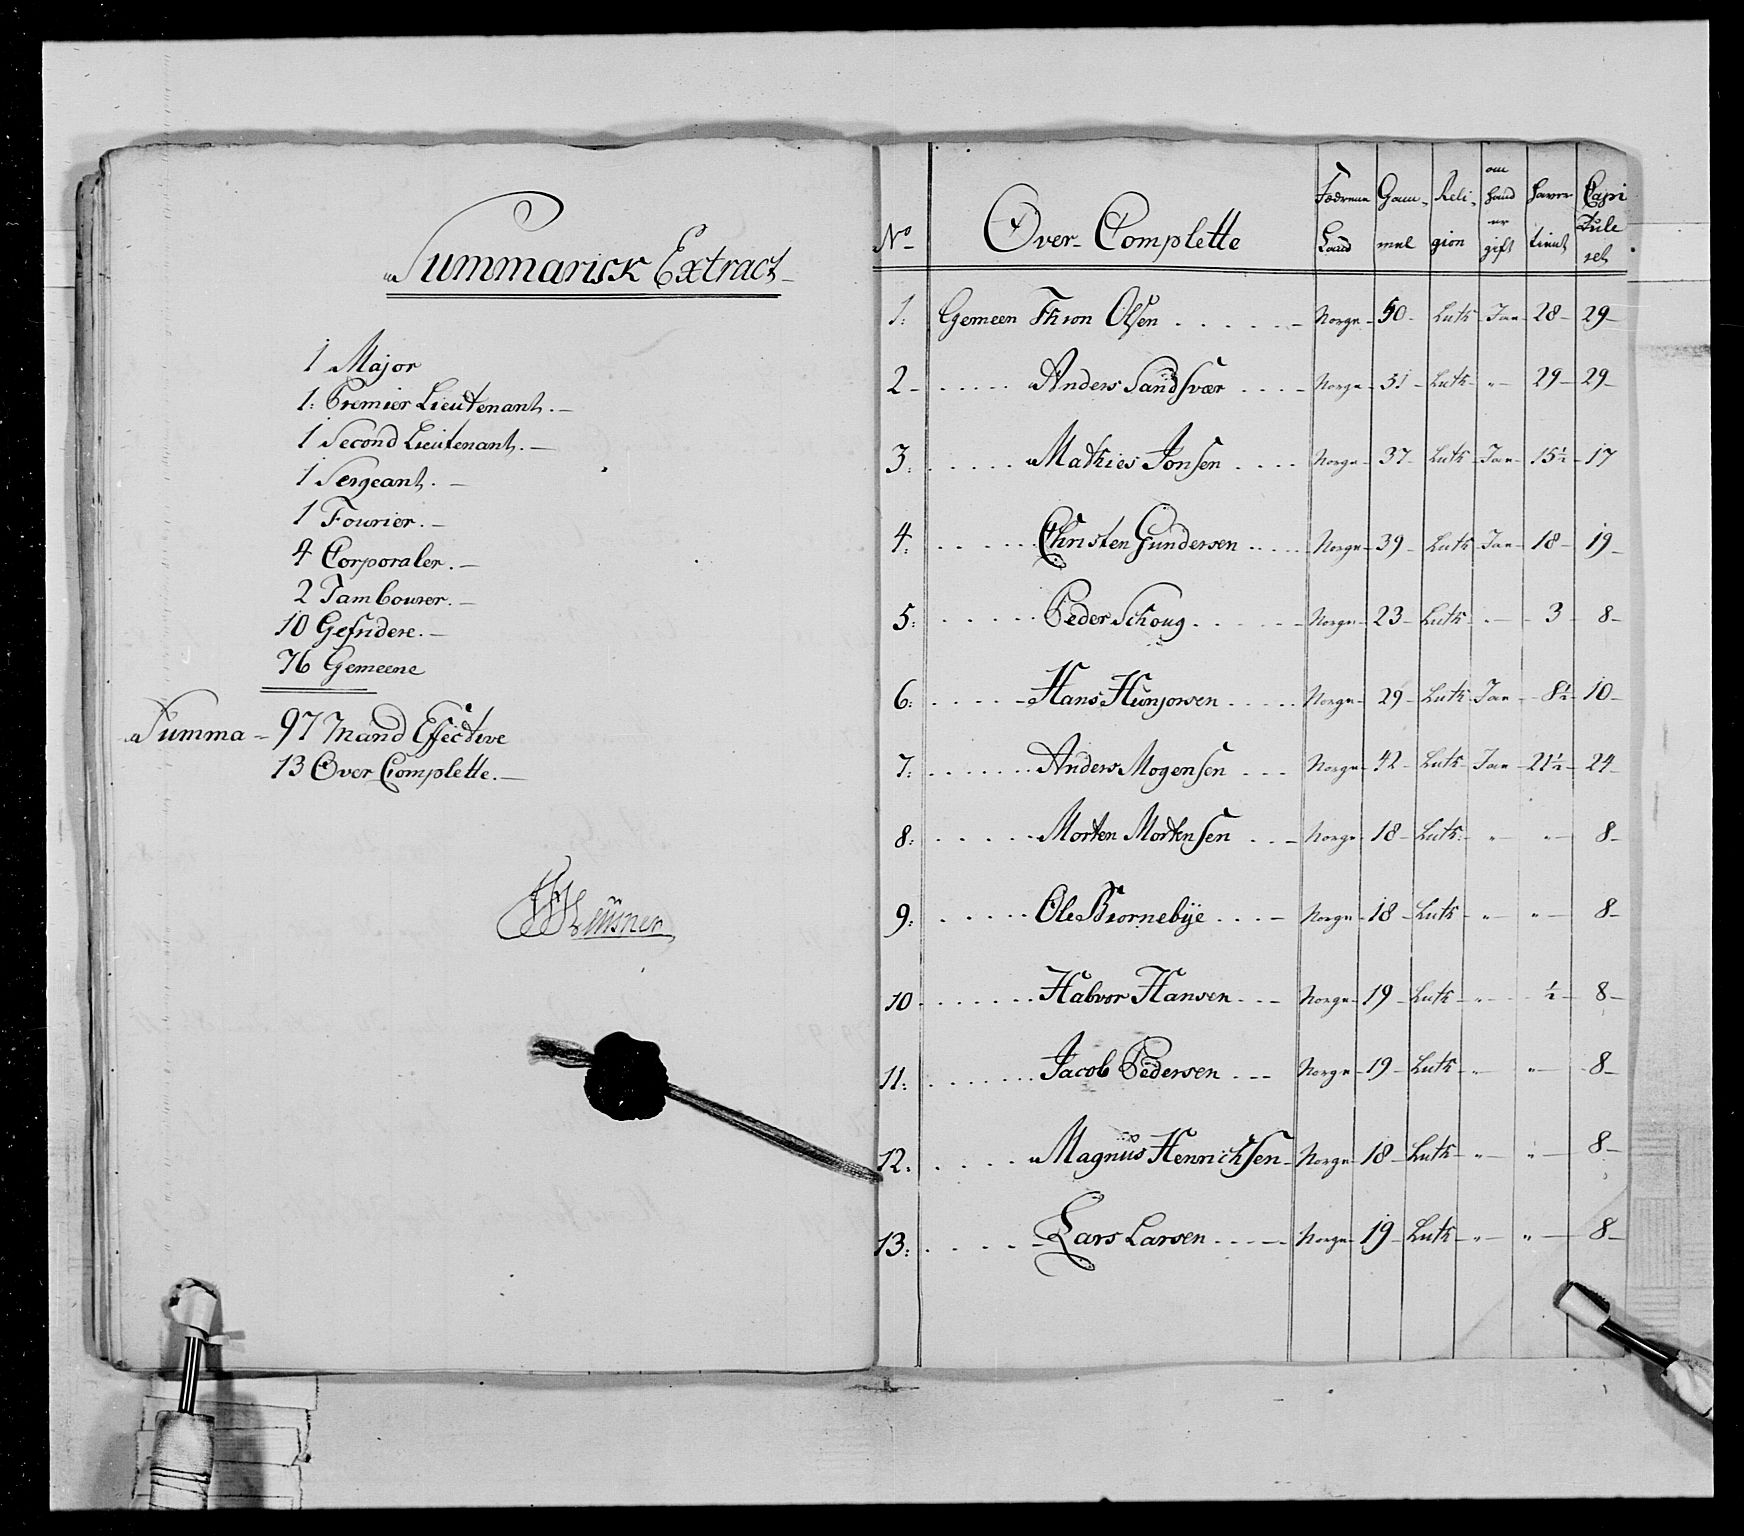 Summarisk Extract
1 Major
1: Premier Lieutenant. –
1 Second Lieutenant. –
1 Sergeant. –
1 Fourier. –
4 Corporaler. –
2 Tambourer. –
10 Gefridere. –
76 Gemeene
Summa – 97 Mand Effective
13 Over Complette. –
No Over-Complette Fædrene Land Gam-mel Reli-gion om hand er gift haver tient Capi tule ret
1: Gemeen Thron Olsen . . . . . . – Norge – 50 – Luth – Jae – 28 – 29 –
2 – . . . . . Anders Sandsvær . . . . – Norge – 51 – Luth – " – 29 – 29 –
3: . . . . . Mathies Jonsen . . . . Norge – 37 – Luth – Jae – 15½ – 17
4: . . . . . Christen Gundersen . . . . Norge – 39 – Luth – Jae – 18 – 19 –
5: . . . . . Peder Schoug . . . . . . – Norge – 23 – Luth – " – 3 – 8 –
6: . . . . – Hans Hunjorsen . . . . . Norge – 29 – Luth – Jae – 8½ – 10 –
7: . . . . . . Anders Mogensen . . . Norge – 42 – Luth – Jae – 21½ – 24 –
8: . . . . . Morten Mortensen . . – Norge – 18 – Luth: " – " – 8 –
9: . . . . . Ole Biørnebÿe . . . – Norge – 18 – Luth – " – " – 8 –
10 . . . . . . Halvor Hansen . . – Norge – 19 – Luth – " – ½ – 8 –
11: . . . . . . Jacob Pedersen . . – Norge – 19 – Luth – " – " – 8 –
12: . . . . Magnus Henrichsen – Norge – 18 – Luth – " – " – 8 –
13: . . . . – Lars Larsen . . . – Norge – 19 – Luth – " – " – 8 –